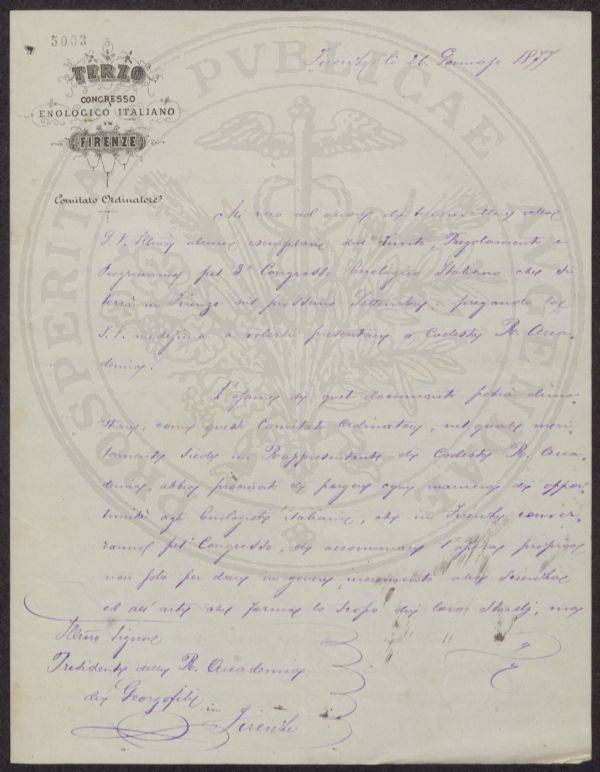 5003
TERZO
CONGRESSO
ENOLOGICO ITALIANO
IN
FIRENZE
Comitato Ordinatore
Firenze li 26 Gennajo 1877
PROSPERITATI PVBLICAE AVGENDAE
Mi reco ad onore di trasmettere alla
S. V. Illma alcuni esemplari dell' Invito, Regolamento e
Programma pel 3° Congresso Enologico Italiano che si
terrà in Firenze nel prossimo Settembre, pregando la
S. V. medesima a volerli presentare a Codesta R. Acca-
demia.
L'esame di quei documenti potrà dimo-
strare, come questo Comitato Ordinatore, nel quale meri-
tamente siede un Rappresentante di Codesta R. Acca-
demia, abbia procurato di porgere ogni maniera di oppor-
tunità agli Enologisti italiani, che in Firenze conver-
ranno pel Congresso, di accomunare l'opera propria
non solo per dare un incremento alla Scienza
ed all' arte che forma lo scopo dei loro Studj, ma
Illmo Signor
Presidente della R. Accademia
dei Georgofili
in Firenze